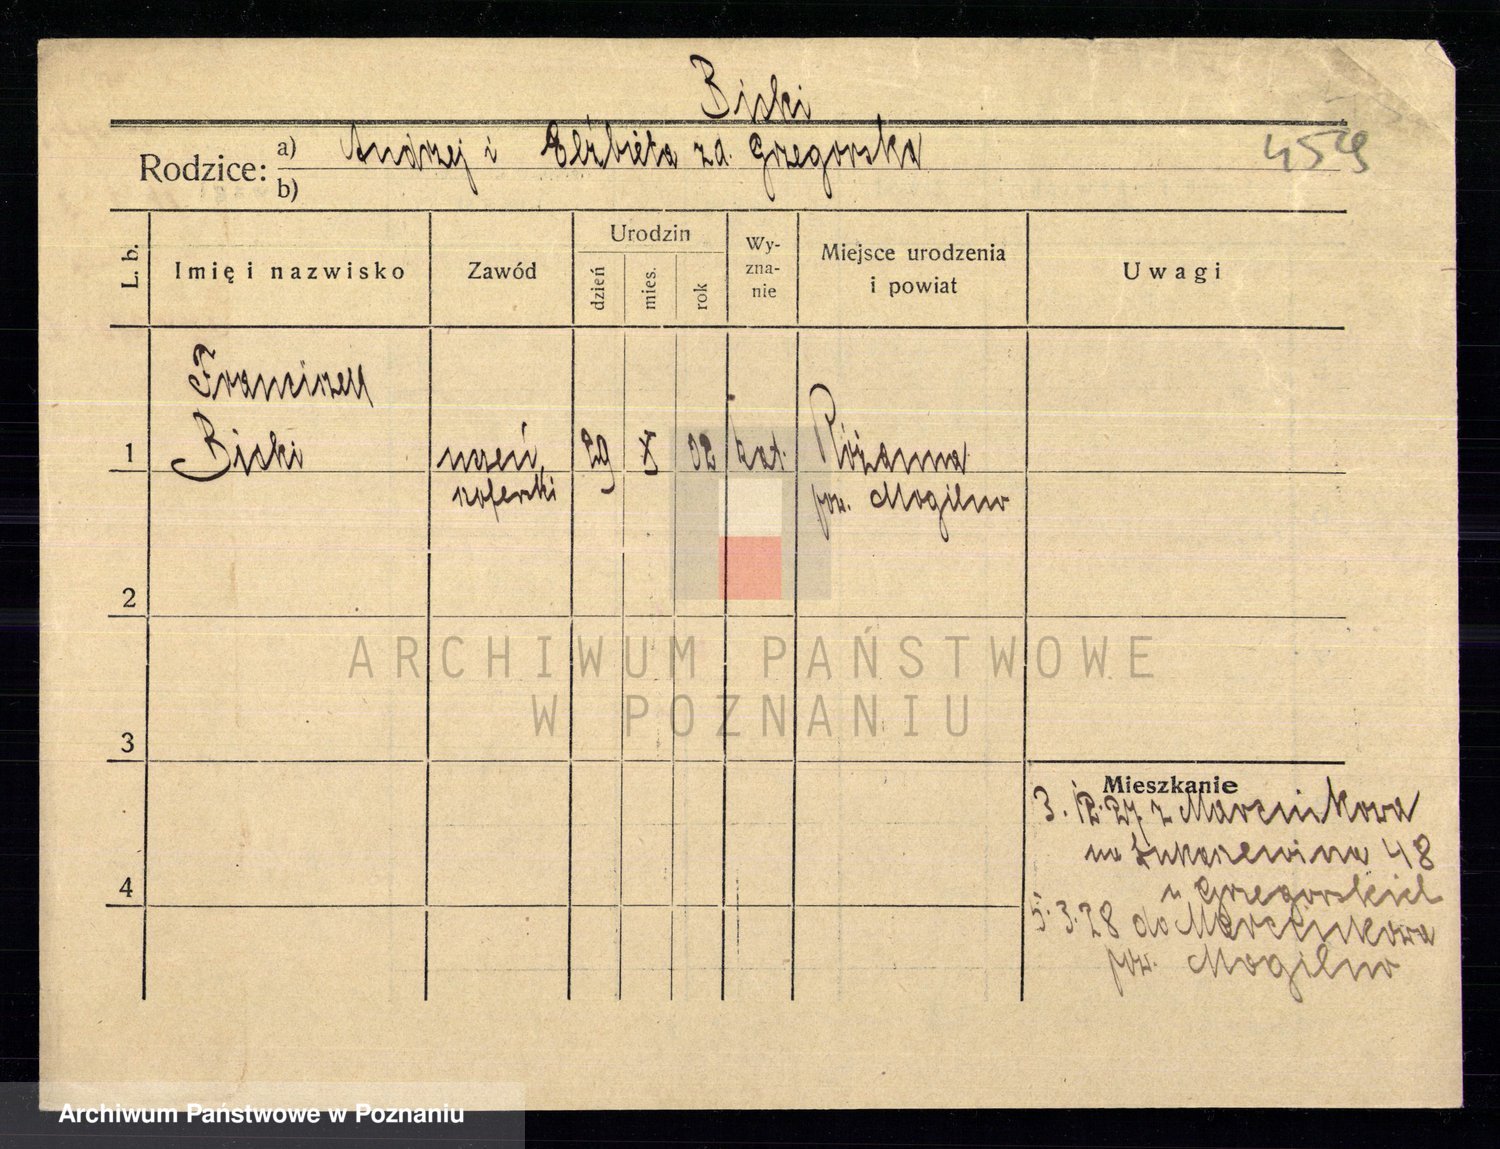 Biski
Rodzice: a) Andrzej i Elżbieta zd. Grzegorska
b)
L. b.
Imię i nazwisko
Zawód
Urodzin
dzień
mies.
rok
Wy-
zna-
nie
Miejsce urodzenia
i powiat
Uwagi
Franciszek
1 Biski uczeń 29 X 02 kat. Różanna
szoferski pow. Mogilno
2
ARCHIWUM PAŃSTWOWE
W POZNANIU
3
Mieszkanie
3. 12. 27 z Marcinkowa
na 48
u Grzegorskich
4
5. 3. 28 do Marcinkowa
pow. Mogilno
Archiwum Państwowe w Poznaniu